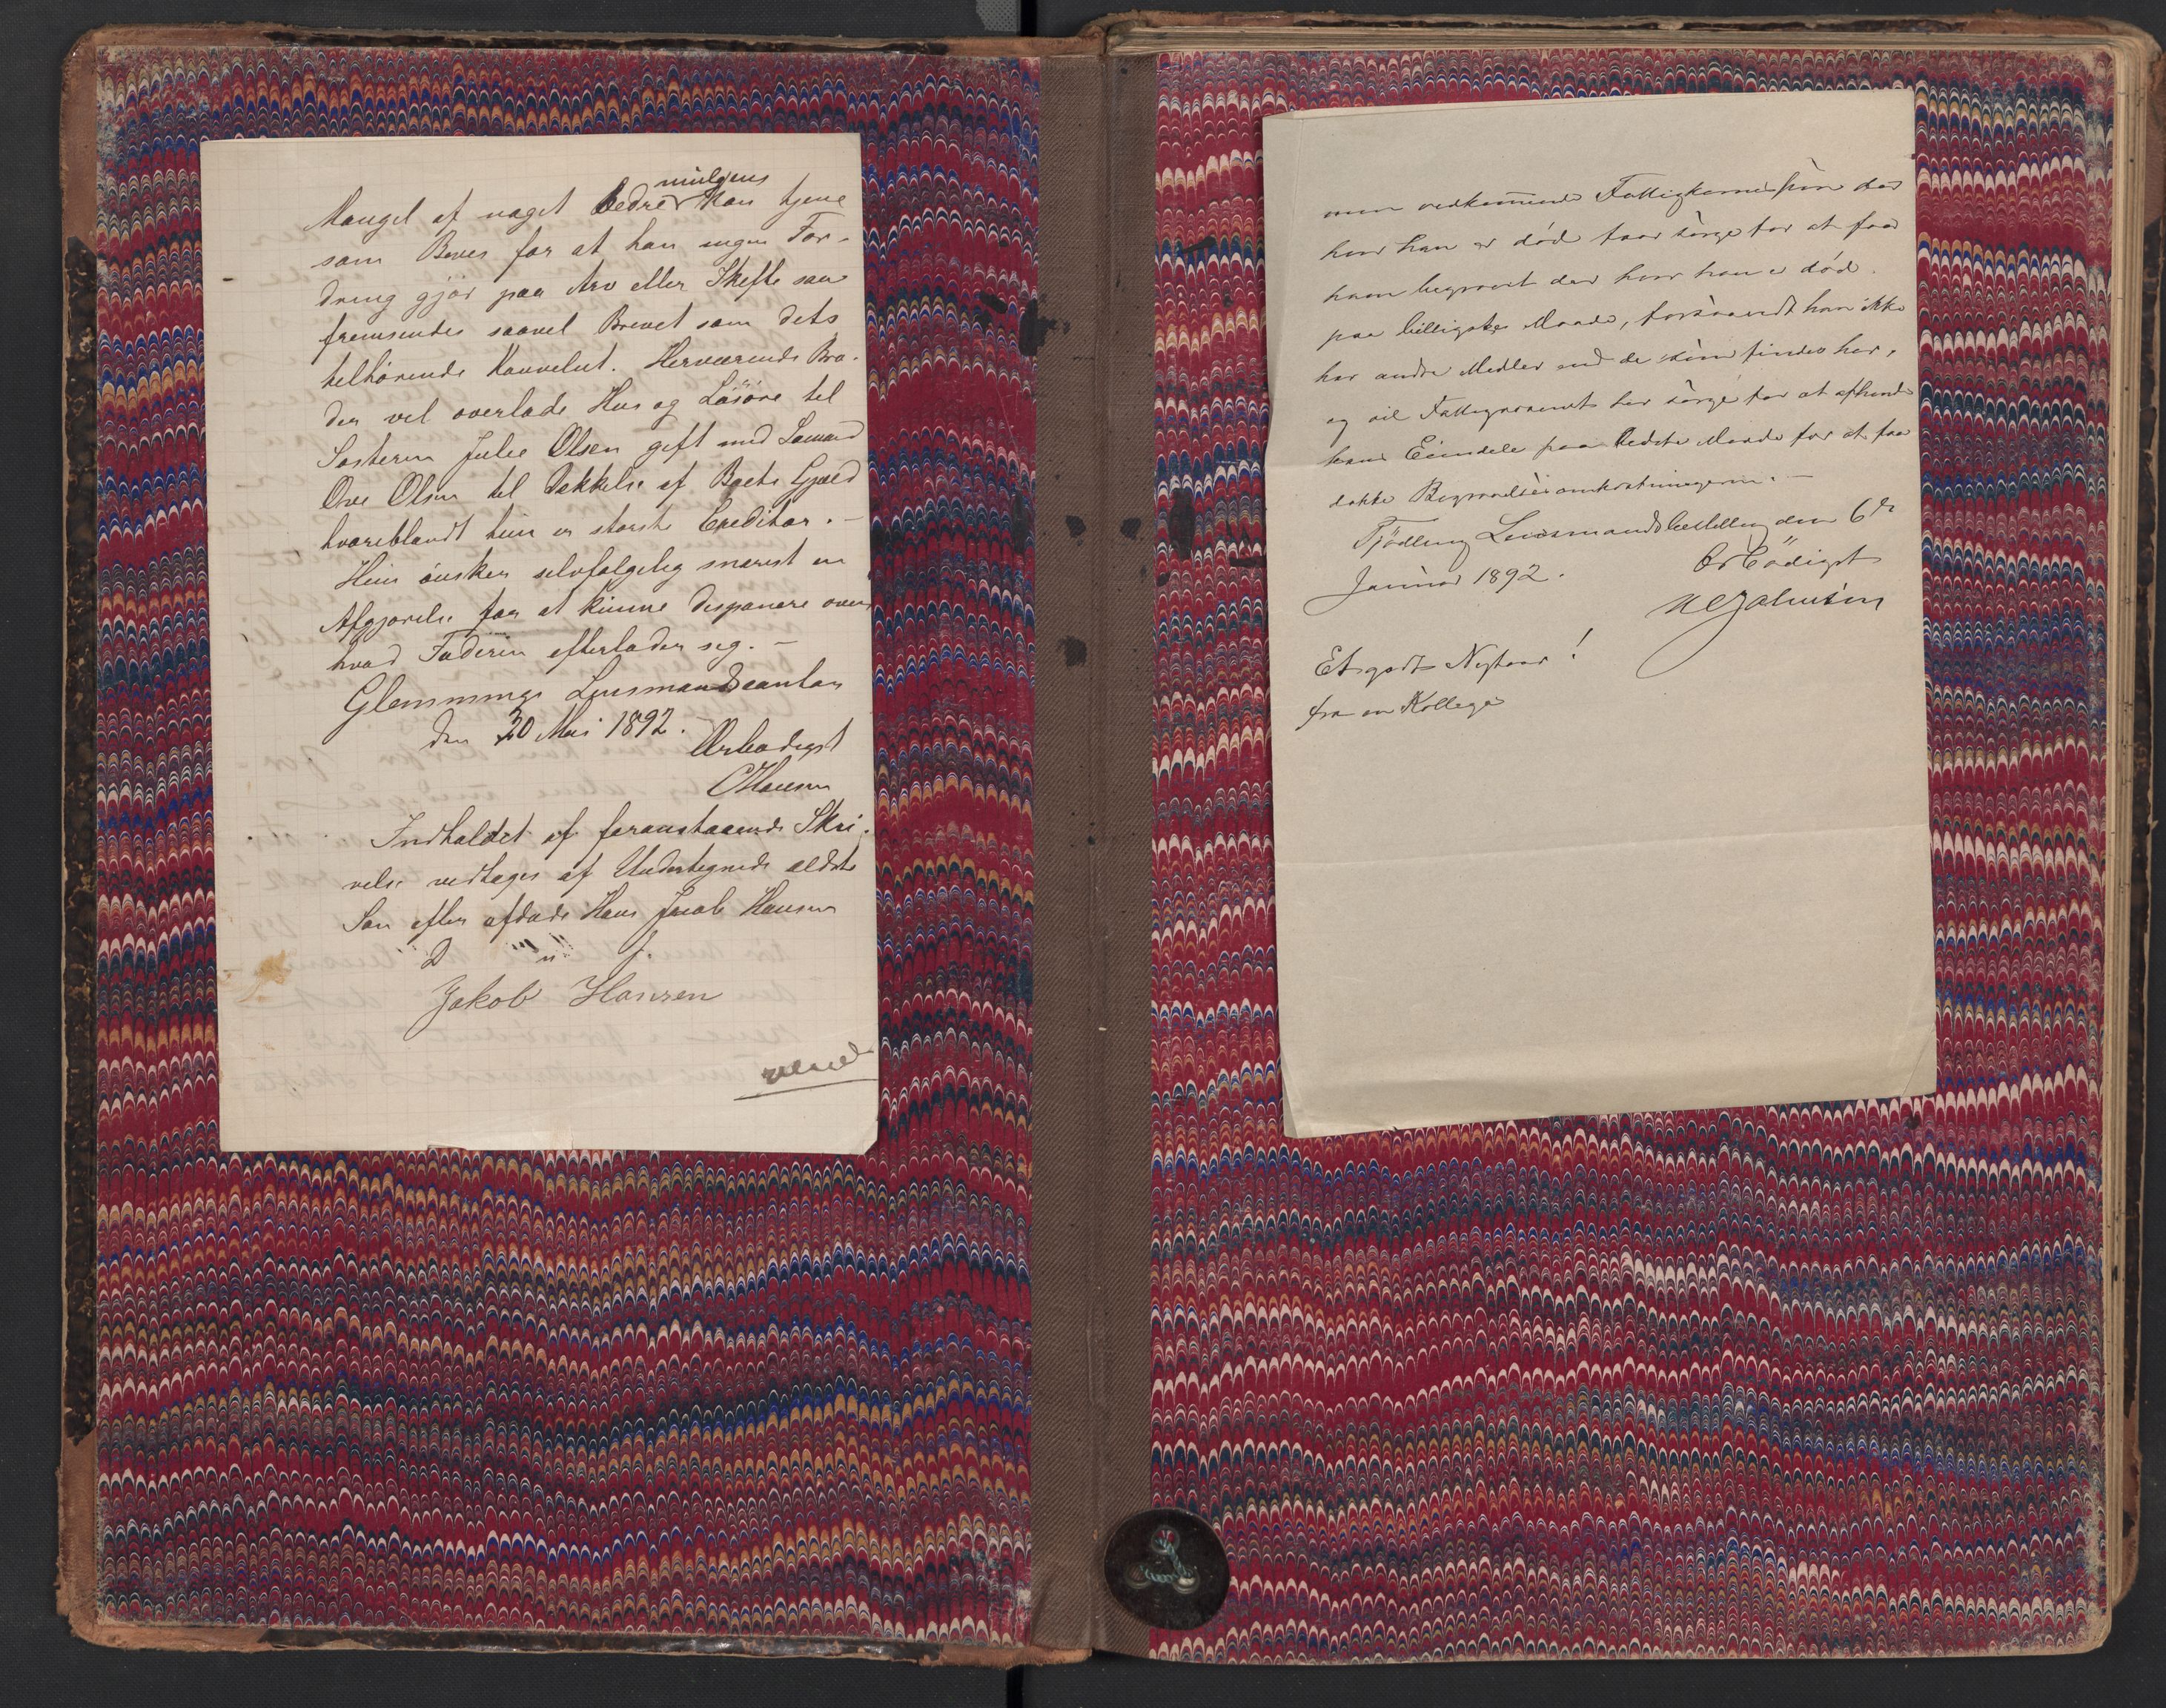 muligens
Mangel af noget bedre kan tjene
som Beves for at han ingen For-
dring gjør paa Arv eller Skifte saa
fremsendes saavel Brevet som dets
telhørende Konvelut. Herværende Brø-
der vel overlade Hus og Løsøre tel
Søsteren Julie Olsen geft med Sømand
Ove Olsen tel Dekkelse af Boets Gjæld
hvoreblandt hun er største Creditor. -
Hun ønsker selvfølgelig snarest en
Afgjørelse for at kunne desponere over
hvad Faderen efterlader seg. -
Glemminge Lensmandscontor
den 30 Mai 1892.
Ærbødigst
CHansen
Indholdet af foranstaaende Skri-
velse vedtages af Undertegnede ældste
Søn efter afdøde Hans Jacob Hansen
D u s.
Jakob Hansen
vend
men vedkommende Fattigkommissjon der
hvor han er død faar sørge for at faa
ham begravet der hvor han er død
paa billigste Maade, forsaavidt han ikke
har andre Medler end de som findes her,
og vil Fattigvæsenet her sørge for at afhænde
hans Eiendele paa bedste Maade for at faa
dække Begravelsesomkostningerne. -
Tjødling Lensmandsbestilling den 6te
Januar 1892.
Ærbødigst
Et godt Nytaar!
fra en Kollega